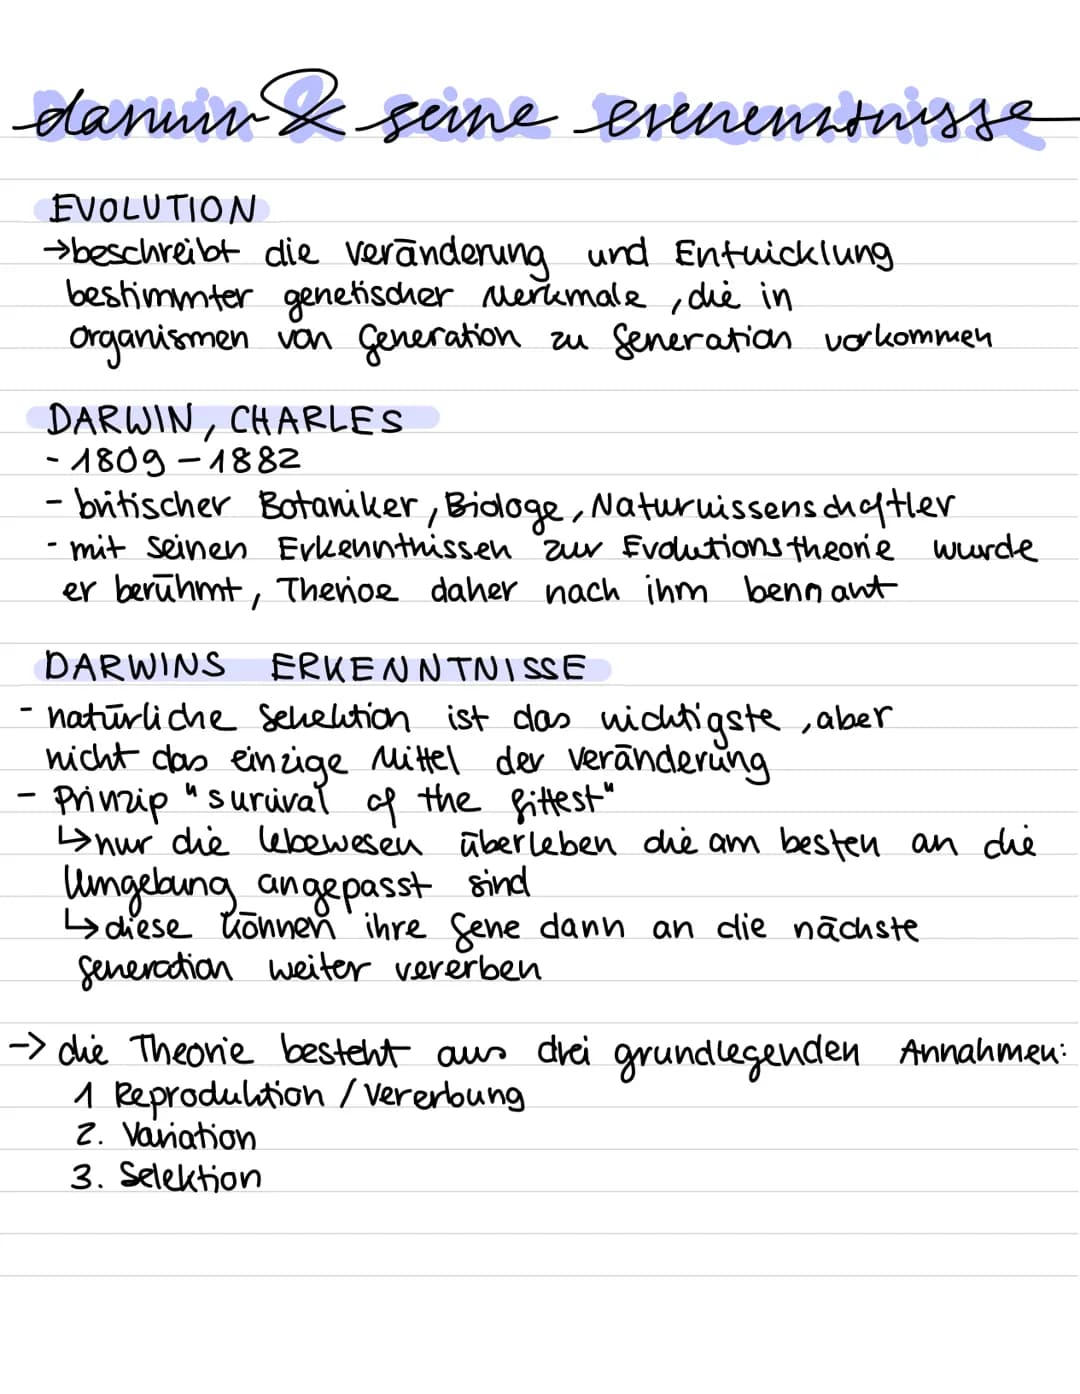 darwin & seine erkenntnisse
EVOLUTION
→beschreibt die Veränderung und Entwicklung
bestimmter genetischer Merkmale, die in
Organismen von Generation zu Generation vorkommen
DARWIN, CHARLES
- 1809 - 1882
- britischer Botaniker, Biologe, Naturwissenschaftler
- mit seinen Erkenntnissen zur Evolutionstheorie wurde
er berühmt, Therioe daher nach ihm bennant
DARWINS ERKENNTNISSE
- natürliche Selektion ist das wichtigste, aber
nicht das einzige Mittel der Veränderung
- Prinzip "survival of the fittest"
↳nur die Lebewesen überleben die am besten an die
Umgebung angepasst sind
↳diese können ihre Gene dann an die nächste
Generation weiter vererben
-> die Theorie besteht aus drei grundlegenden Annahmen:
1 Reproduktion / Vererbung
2. Variation
3. Selektion